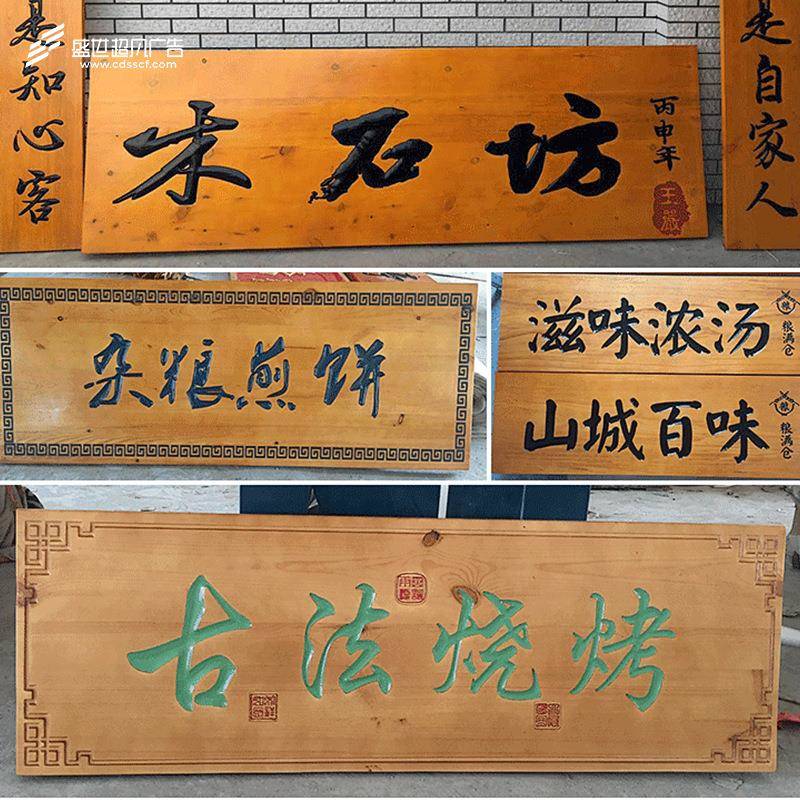 盛世超风广告
www.cdsscf.com
是知心客
木石坊
丙申年
是自家人
杂粮煎饼
滋味浓汤
粮
粮满仓
山城百味
粮
粮满仓
古法烧烤